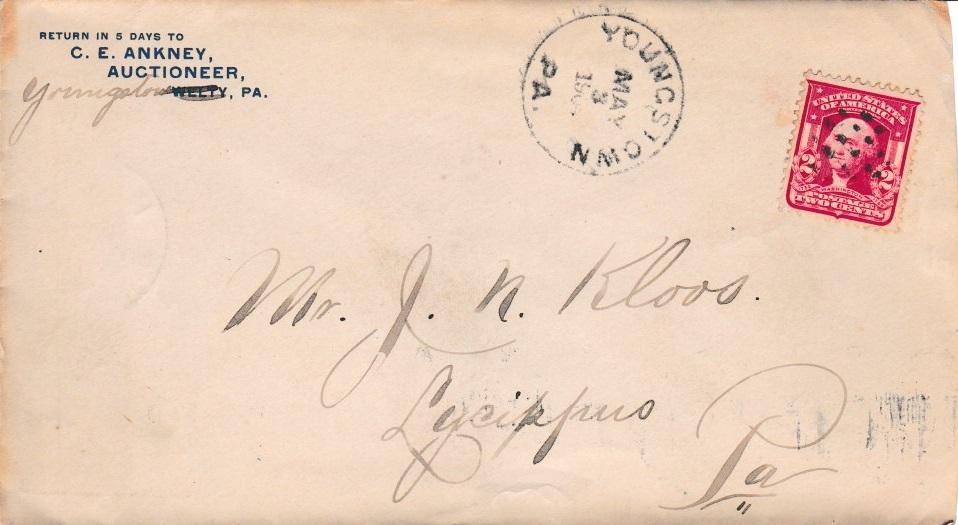 RETURN IN 5 DAYS TO
C. E. ANKNEY,
AUCTIONEER,
Youngstown WELTY, PA.
YOUNGSTOWN
MAY
3
PA.
UNITED STATES
OF AMERICA
2 2
WASHINGTON
POSTAGE
TWO CENTS
Mr. J. N. Kloos.
Lycippus
Pa